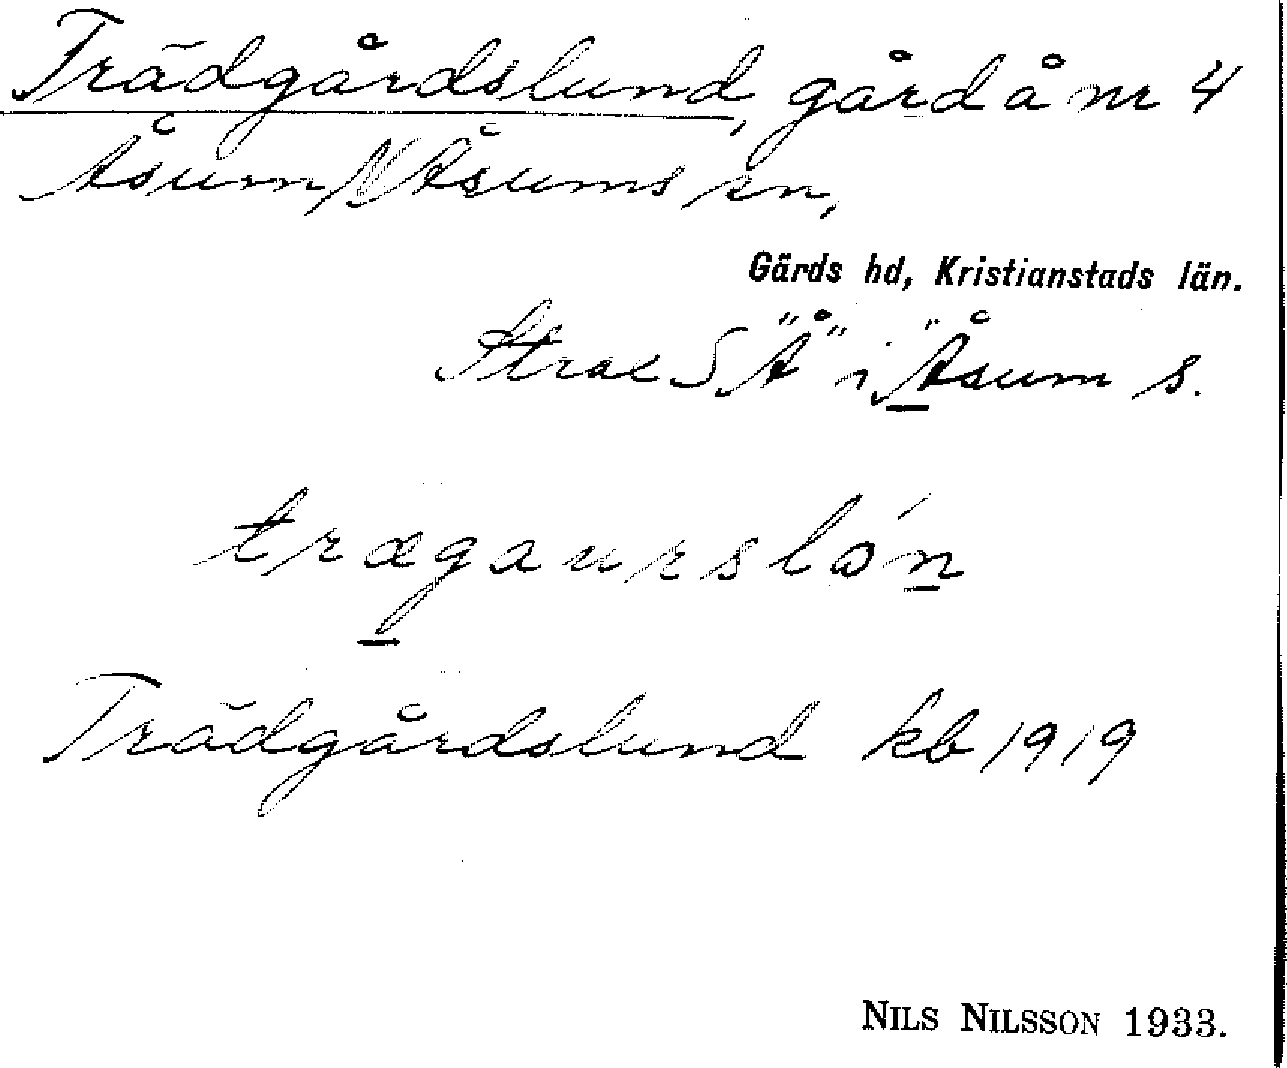 Trädgårdslund, gård å nr 4
Åsum, N Åsums sn,
Gärds hd, Kristianstads län.
Strax S "Å" i "Åsum s.
trægaurslón
Trädgårdslund kb 1919
NILS NILSSON 1933.